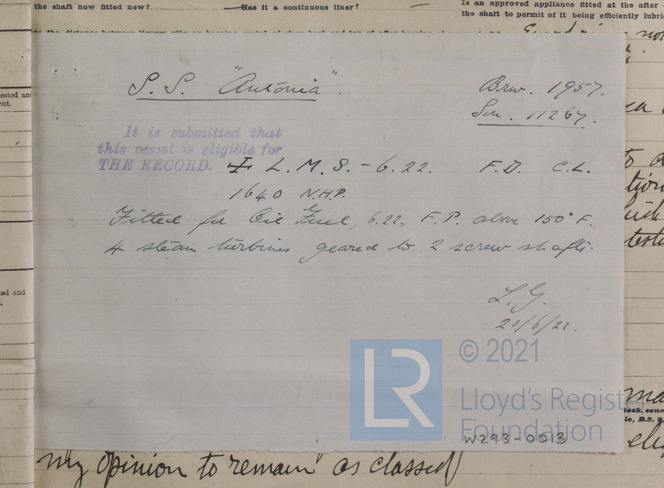 the shaft now fitted new?
Has it a continuous liner?
Is an approved appliance fitted at the after
the shaft to permit of it being efficiently lubric
S.S. "Antonia".
Brw. 1957.
Sou. 11267.
It is submitted that
this vessel is eligible for
THE RECORD.
L.M.S. - 6.22. F.D. C.L.
1640 N.H.P.
Fitted for Oil Fuel, 6.22, F.P. above 150° F.
4 steam turbines geared to 2 screw shafts.
L.G.
21/6/22.
© 2021
LR
Lloyd's Register
Foundation
W293-0013
my opinion to remain as classed